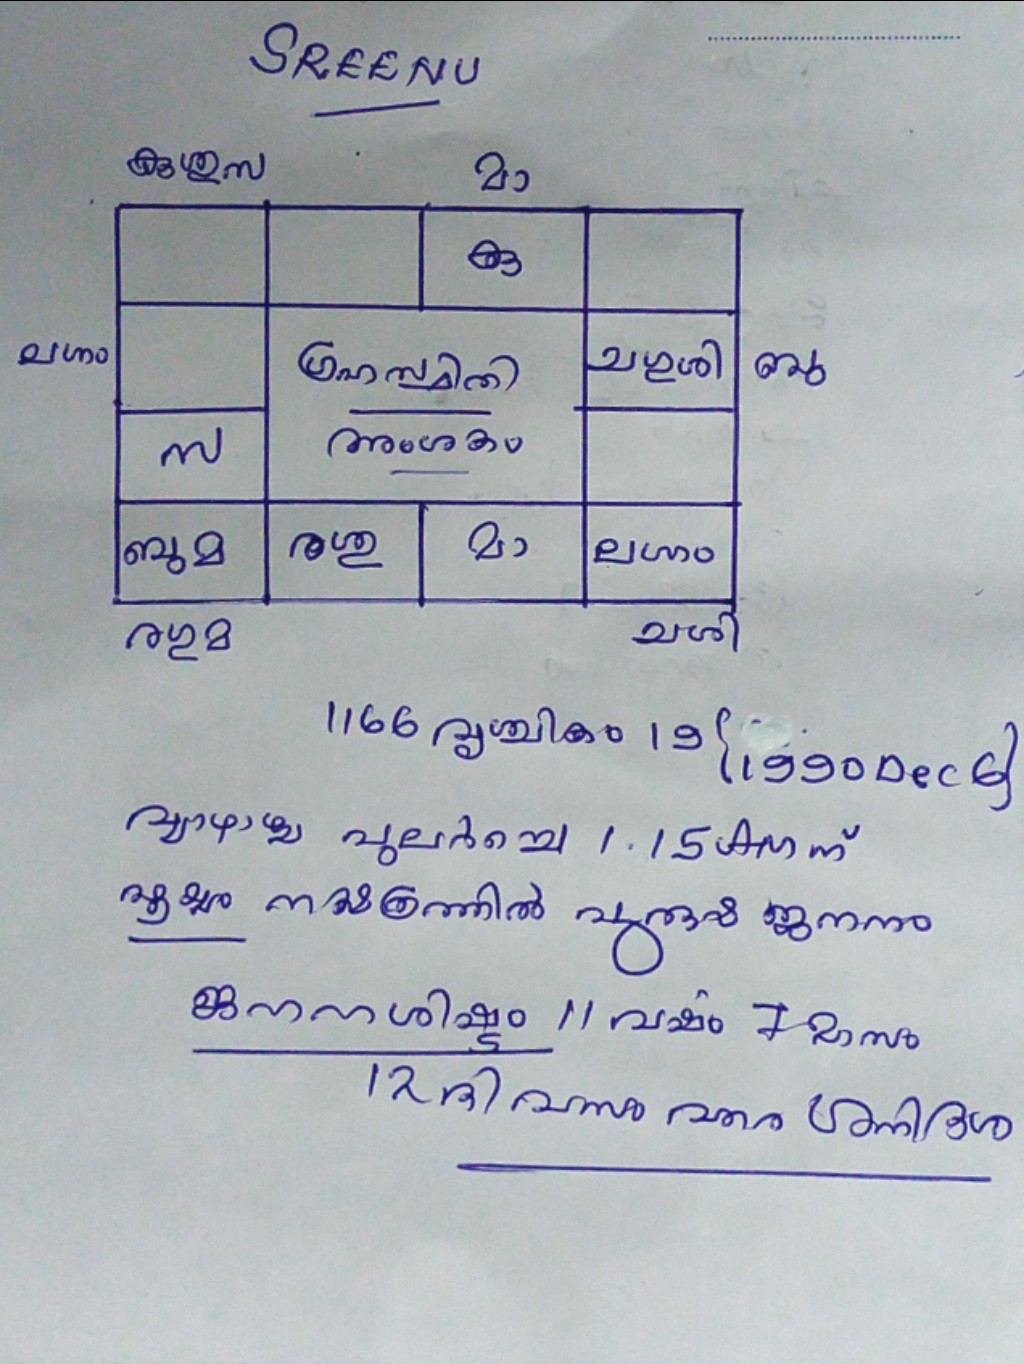 SREENU
കുശുസ മാ
കു
ലഗ്നം ഗ്രഹസ്ഥിതി ചഗുശി ബു
സ അംശകം
ബുമ രശു മാ ലഗ്നം
രഗുമ ചശി
1166 വൃശ്ചികം 19 {1990 Dec 6}
വ്യാഴാഴ്ച പുലർച്ചെ 1.15 ന്
നക്ഷത്രത്തിൽ പുരുഷ ജനനം
ജനനശിഷ്ടം 11 വർഷം 7 മാസം
12 ദിവസം വരെ ശനിദശ